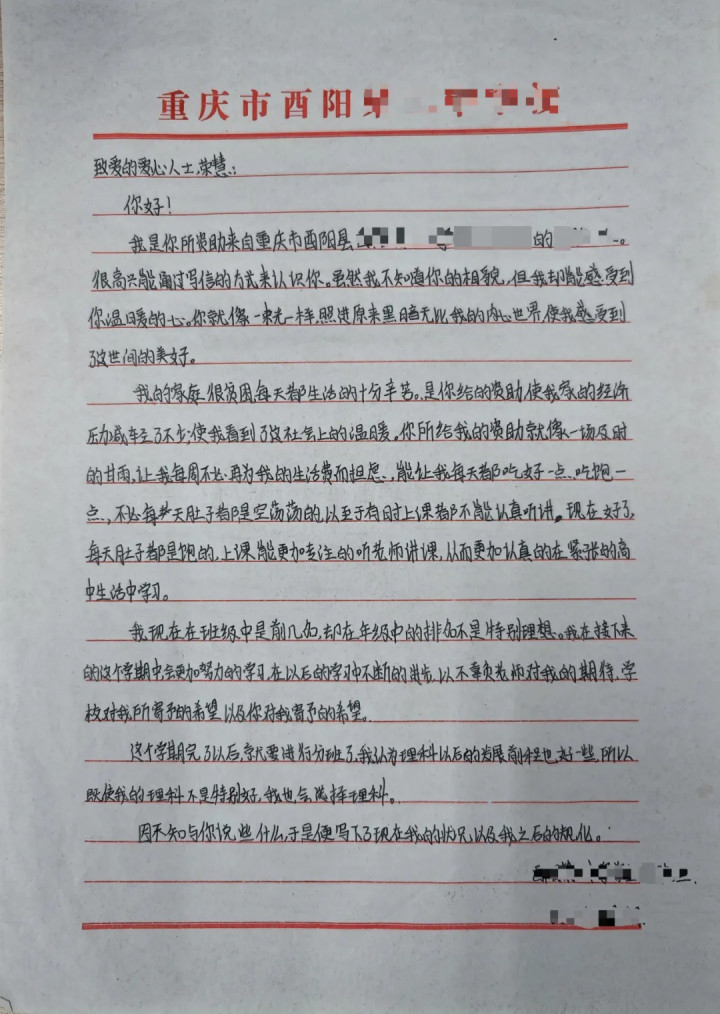 重庆市酉阳
致爱的爱心人士,荣慧:
你好!
我是你所资助来自重庆市酉阳县的。
很高兴能通过写信的方式来认识你。虽然我不知道你的相貌,但我却能感受到
你温暖的心。你就像一束光一样,照进原来黑暗无比我的内心世界,使我感受到
了这世间的美好。
我的家庭很贫困,每天都生活的十分辛苦。是你给的资助使我家的经济
压力减轻了不少,使我看到了这社会上的温暖。你所给我的资助就像一场及时
的甘雨,让我每周不必再为我的生活费而担忧,能让我每天都吃好一点、吃饱一
点,不必每天肚子都是空荡荡的,以至于有时上课都不能认真听讲。现在好了,
每天肚子都是饱的,上课能更加专注的听老师讲课,从而更加认真的在紧张的高
中生活中学习。
我现在在班级中是前几名,却在年级中的排名不是特别理想。我在接下来
的这个学期中会更加努力的学习,在以后的学习中不断的进步,以不辜负老师对我的期待,学
校对我所寄予的希望以及你对我寄予的希望。
这个学期完了以后,就要进行分班了,我认为理科以后的发展前程也好一些,所以
既使我的理科不是特别好,我也会选择理科。
因不知与你说些什么,于是便写下了现在我的状况以及我之后的规化。